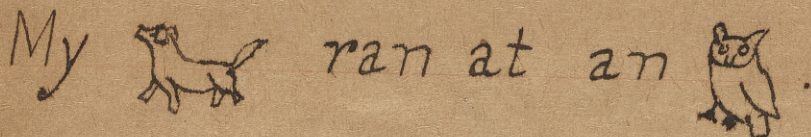 My ran at an .